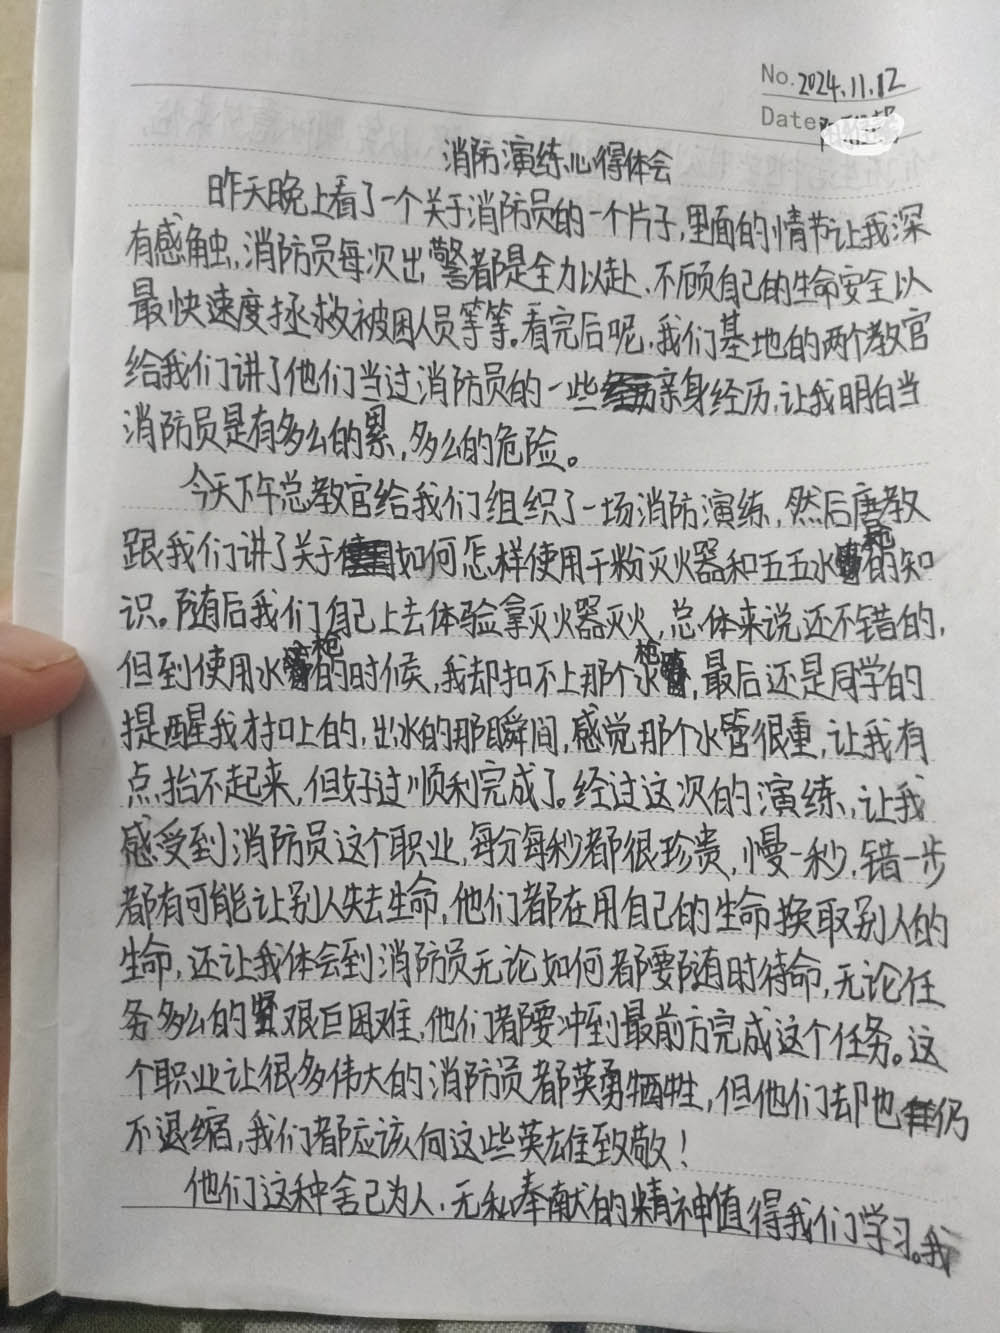 No. 2024.11.12
Date
消防演练心得体会
昨天晚上看了一个关于消防员的一个片子,里面的情节让我深
有感触,消防员每次出警都是全力以赴、不顾自己的生命安全以
最快速度拯救被困人员等等。看完后呢,我们基地的两个教官
给我们讲了他们当过消防员的一些亲身经历,让我明白当
消防员是有多么的累,多么的危险。
今天下午总教官给我们组织了一场消防演练,然后唐教
跟我们讲了关于如何怎样使用干粉灭火器和五五水枪的知
识。随后我们自己上去体验拿灭火器灭火,总体来说还不错的,
但到使用水枪的时候,我却扣不上那个水枪,最后还是同学的
提醒我才扣上的,出水的那瞬间,感觉那个水管很重,让我有
点抬不起来,但好过顺利完成了。经过这次的演练,让我
感受到消防员这个职业,每分每秒都很珍贵,慢一秒,错一步
都有可能让别人失去生命,他们都在用自己的生命换取别人的
生命,还让我体会到消防员无论如何都要随时待命,无论任
务多么的艰巨困难,他们都要冲到最前方完成这个任务。这
个职业让很多伟大的消防员都英勇牺牲,但他们却也仍
不退缩,我们都应该向这些英雄致敬!
他们这种舍己为人,无私奉献的精神值得我们学习。我